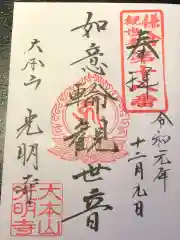 奉拝
令和元年
十二月 日
如意輪観世音
大本山
光明寺
大本山
光明寺